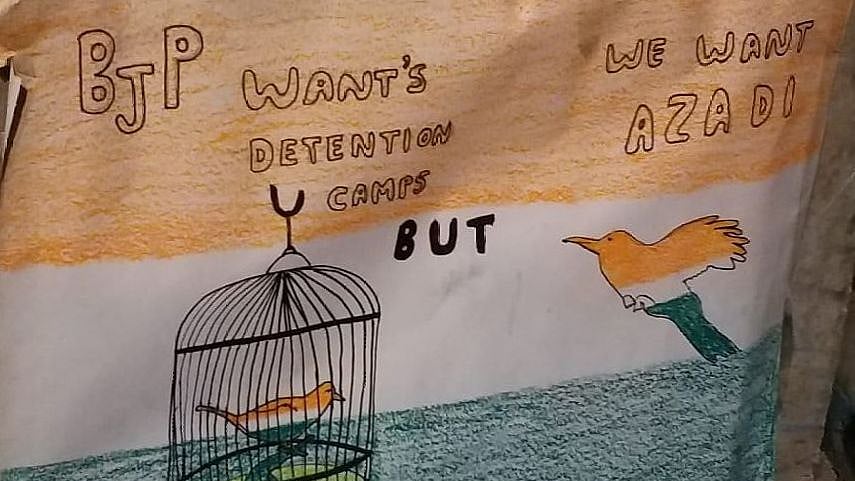 BJP WANT'S
DETENTION
CAMPS
BUT
WE WANT
AZADI